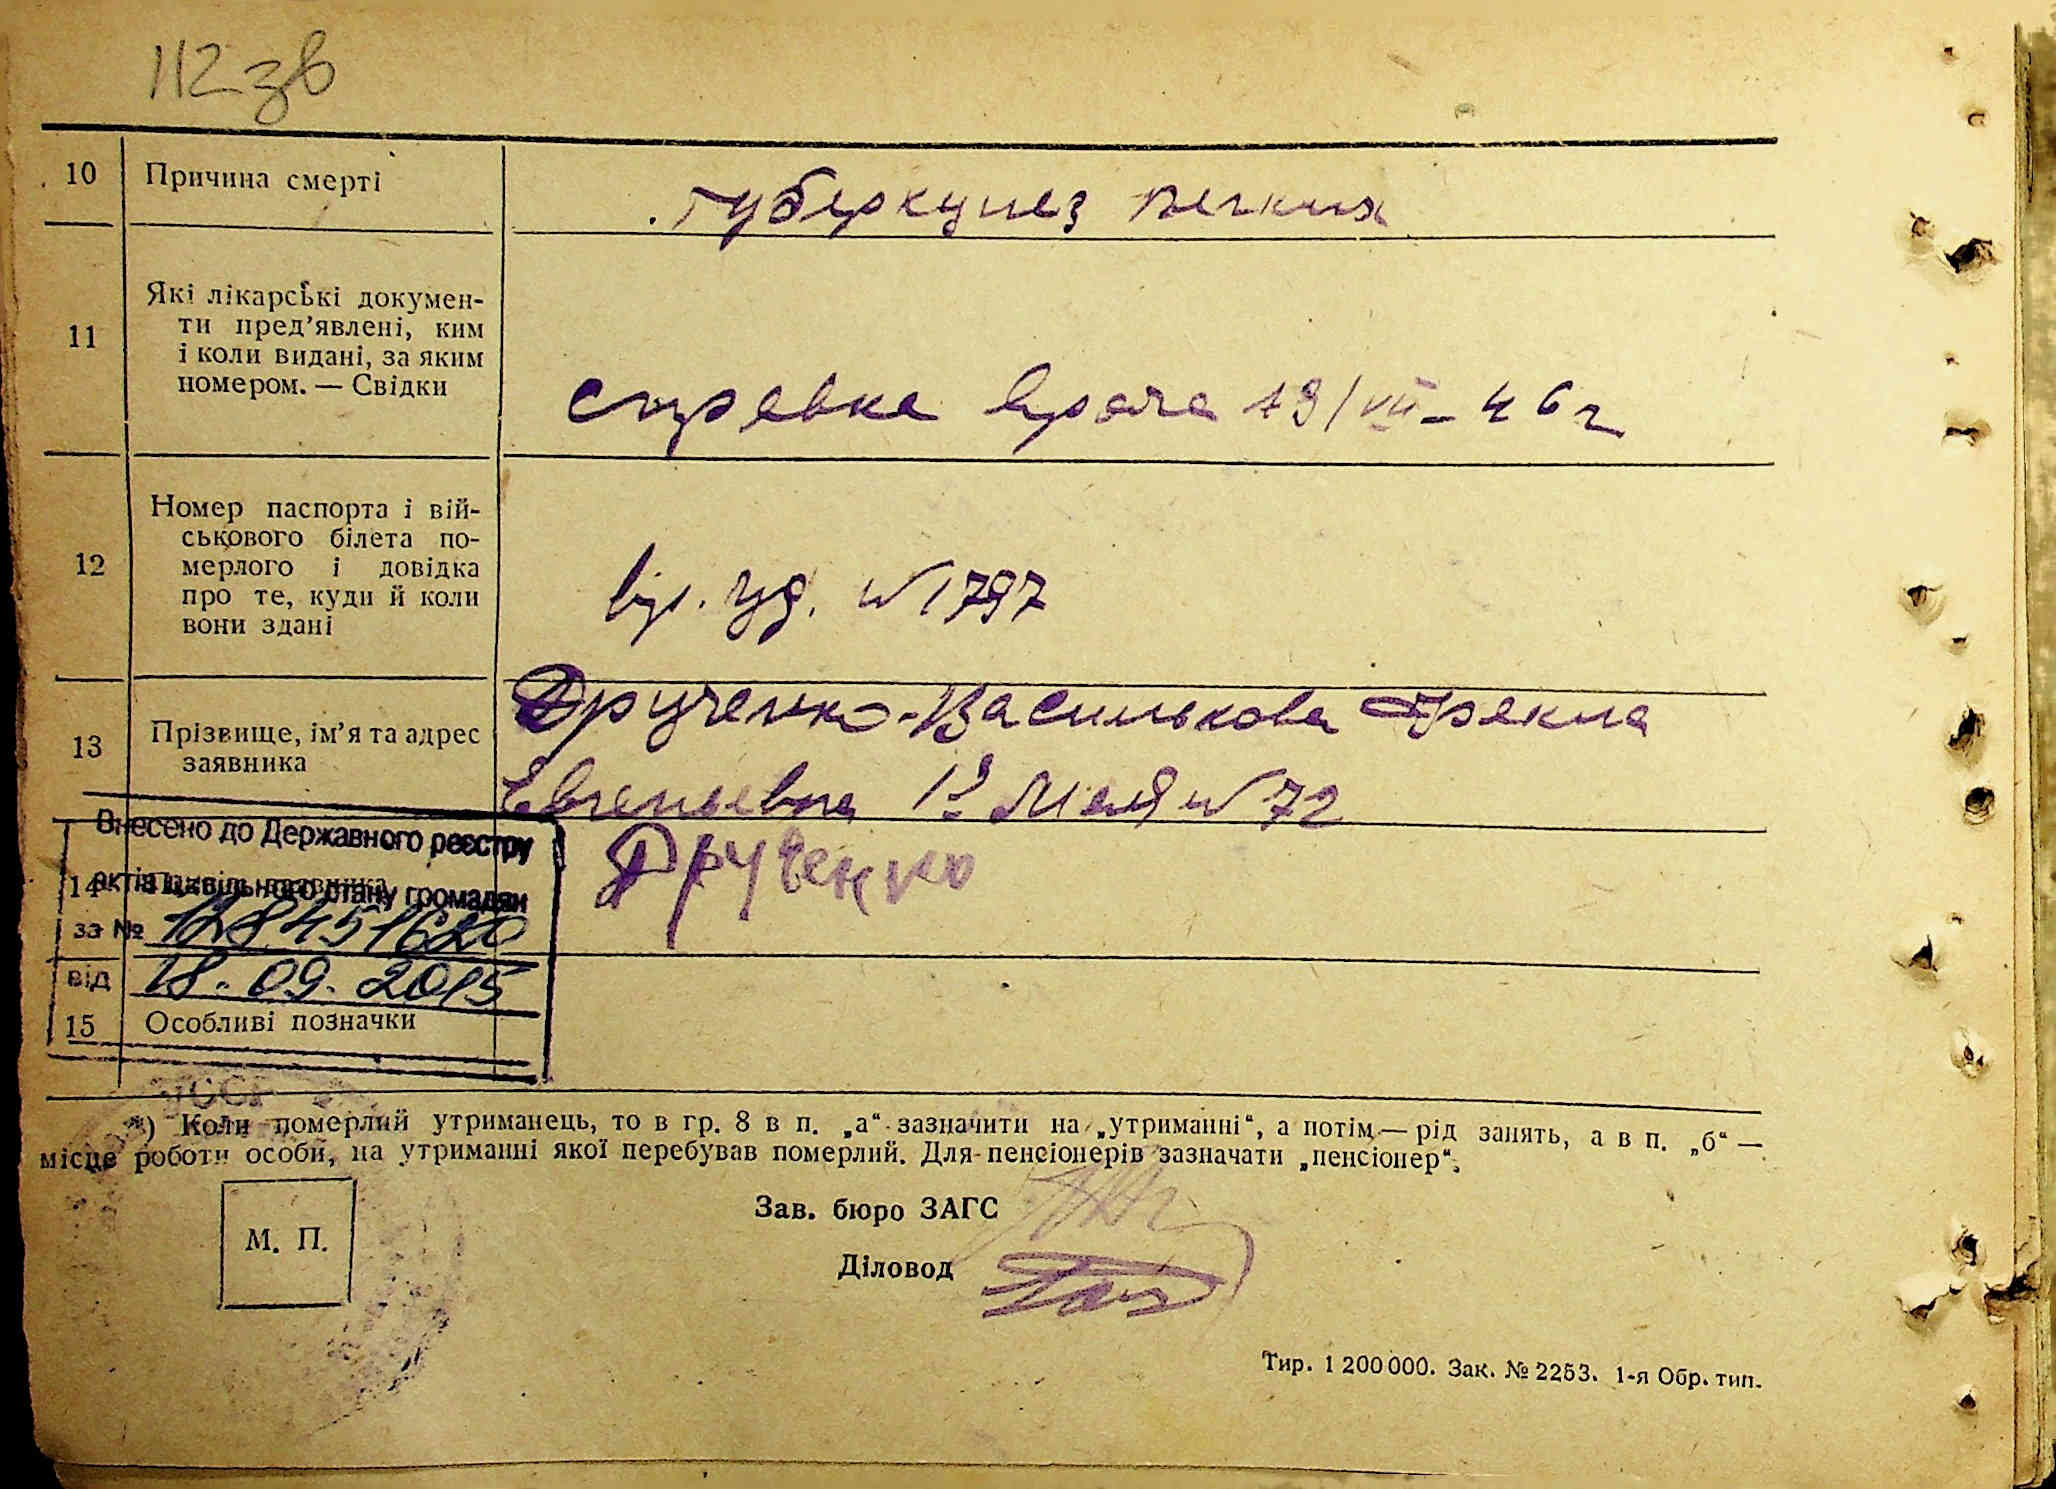 112 зв
10 Причина смерті туберкулез легких
11 Які лікарські докумен-
ти пред'явлені, ким
і коли видані, за яким
номером. — Свідки
справка врача 19/VII-46 г
12 Номер паспорта і вій-
ськового білета по-
мерлого і довідка
про те, куди й коли
вони здані
вр. уд. № 1797
13 Прізвище, ім'я та адрес
заявника
Друченко-Василькова Фекла
Евгеньевна 1го Мая № 72
Внесено до Державного реєстру
актів цивільного стану громадян
за № 128451620
від 18.09.2015
14
Друченко
15 Особливі позначки
*) Коли померлий утриманець, то в гр. 8 в п. „а“ зазначити на „утриманні“, а потім — рід занять, а в п. „б“ —
місце роботи особи, на утриманні якої перебував померлий. Для пенсіонерів зазначати „пенсіонер“.
М. П.
Зав. бюро ЗАГС
Діловод
Тир. 1 200 000. Зак. № 2253. 1-я Обр. тип.